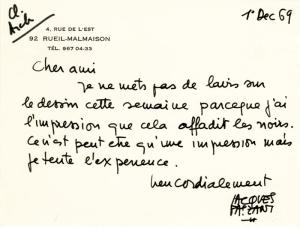 Cl.
Arch
4, RUE DE L'EST
92 RUEIL-MALMAISON
TÉL. 967 04-33
1er Dec 69
Cher ami
Je ne mets pas de lavis sur
le dessin cette semaine parceque j'ai
l'impression que cela affadit les noirs.
Ce n'est peut être qu'une impression mais
je tente l'experience.
bien cordialement
JACQUES
FAIZANT